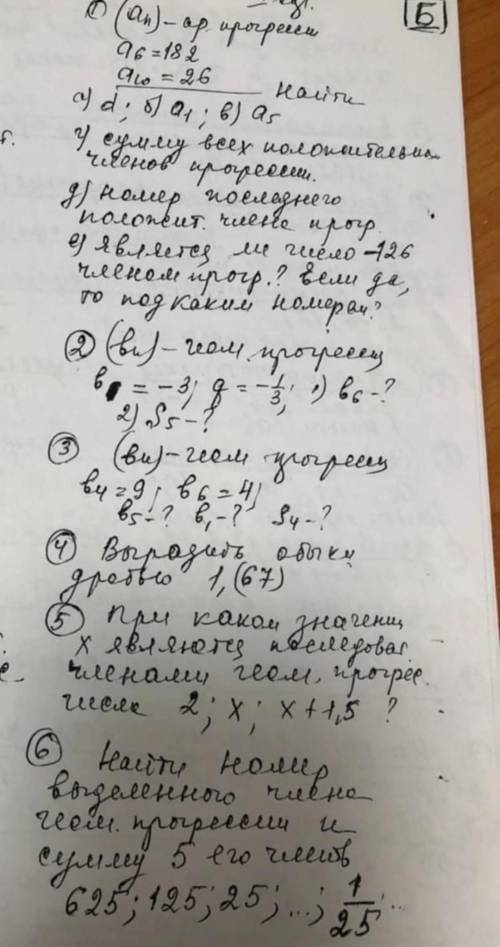 Б
① (an) – ар. прогресси
a6 = 182
a10 = 26
Найти
а) d; б) a1; в) a5
г) сумму всех положительн
членов прогрессии.
д) номер последнего
положит. члена прогр.
е) является ли число –126
членом прогр.? Если да,
то под каким номером?
② (bn) – геом. прогресси
b1 = –3; q = –1/3; 1) b6 – ?
2) S5 – ?
③ (bn) – геом прогресси
b4 = 9; b6 = 4;
b5 – ? b1 – ? S4 – ?
④ Выразить обыкн
дробью 1,(67)
⑤ При каком значени
x являются последоват
членами геом. прогрес.
числа 2; x; x + 1,5 ?
⑥ Найти номер
выделенного члена
геом. прогрессии и
сумму 5 его членов
625; 125; 25; ...; 1/25; ..